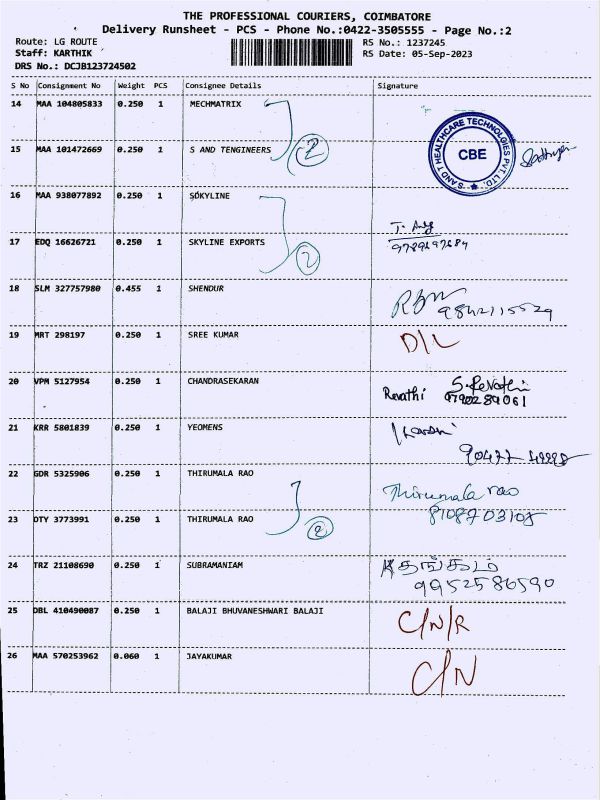 THE PROFESSIONAL COURIERS, COIMBATORE
Delivery Runsheet - PCS - Phone No.:0422-3505555 - Page No.:2
Route: LG ROUTE
RS No.: 1237245
Staff: KARTHIK
RS Date: 05-Sep-2023
DRS No.: DCJB123724502
S No Consignment No Weight PCS Consignee Details Signature
14 MAA 104805833 0.250 1 MECHMATRIX
15 MAA 101472669 0.250 1 S AND TENGINEERS
2
S AND T HEALTHCARE TECHNOLOGIES PVT. LTD.
CBE
16 MAA 938077892 0.250 1 SOKYLINE
17 EDQ 16626721 0.250 1 SKYLINE EXPORTS
2
18 SLM 327757980 0.455 1 SHENDUR
9842115529
19 MRT 298197 0.250 1 SREE KUMAR D/L
20 VPM 5127954 0.250 1 CHANDRASEKARAN Revathi S. Revathi
9790289061
21 KRR 5801839 0.250 1 YEOMENS
22 GDR 5325906 0.250 1 THIRUMALA RAO Thirumala rao
23 DTY 3773991 0.250 1 THIRUMALA RAO 8108703108
2
24 TRZ 21108690 0.250 1 SUBRAMANIAM
9952586590
25 DBL 410490087 0.250 1 BALAJI BHUVANESHWARI BALAJI C/N/R
26 MAA 570253962 0.060 1 JAYAKUMAR C/N